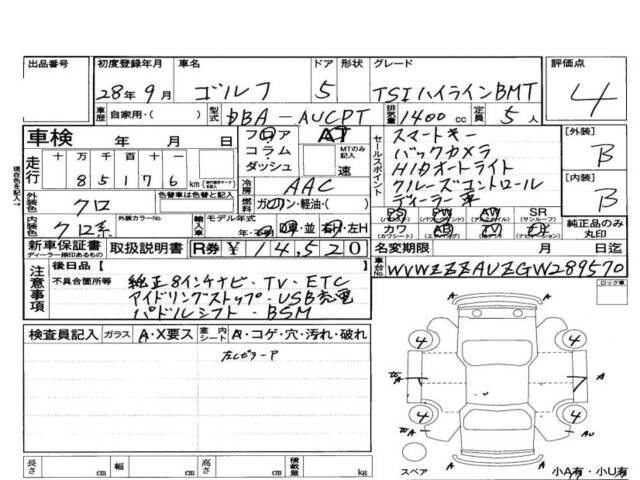 出品番号 初度登録年月 車名 ドア 形状 グレード 評価点
28年9月 ゴルフ 5 TSIハイラインBMT 4
車歴 自家用・( ) 型式 DBA-AUCPT 排気量 1400 cc 定員 5人
車検 年 月 日 フロア AT
コラム MTのみ記入
ダッシュ 速
走行 十 万 千 百 十 一
8 5 1 7 6 km
現在色を記入→
外装色 クロ 色替車は色替と記入
冷房 AAC
燃料 ガソリン・軽油・( )
内装色 クロ系 外装カラーNo. 輸入車 モデル年式 年・ 並 右H・左H
セールスポイント
スマートキー
バックカメラ
HIDオートライト
クルーズコントロール
ディーラー車
PS PW AW SR
カワ AB TV
[外装] B
[内装] B
純正品のみ丸印
新車保証書 取扱説明書 R券 ¥14,520 名変期限 月 日迄
ディーラー捺印あるもの
注意事項 後日品[ ] 車台No. WVWZZZAUZGW289570
不具合箇所等 純正8インチナビ・TV・ETC
アイドリングストップ・USB充電
パドルシフト・BSM
ロック車
検査員記入 ガラス A・X要ス 室内シート A・コゲ・穴・汚れ・破れ
左Cピラーア
A
4 4
A A
4 4
A AU
A
スペア
長さ cm 幅 cm 高さ cm 積載量 kg 小A有・小U有